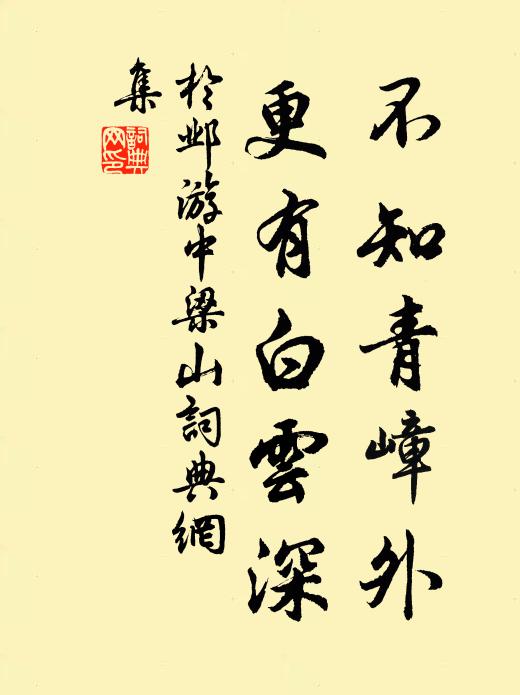 不知青嶂外
更有白雲深
於邺游中梁山詞典網
集
詞典
网印